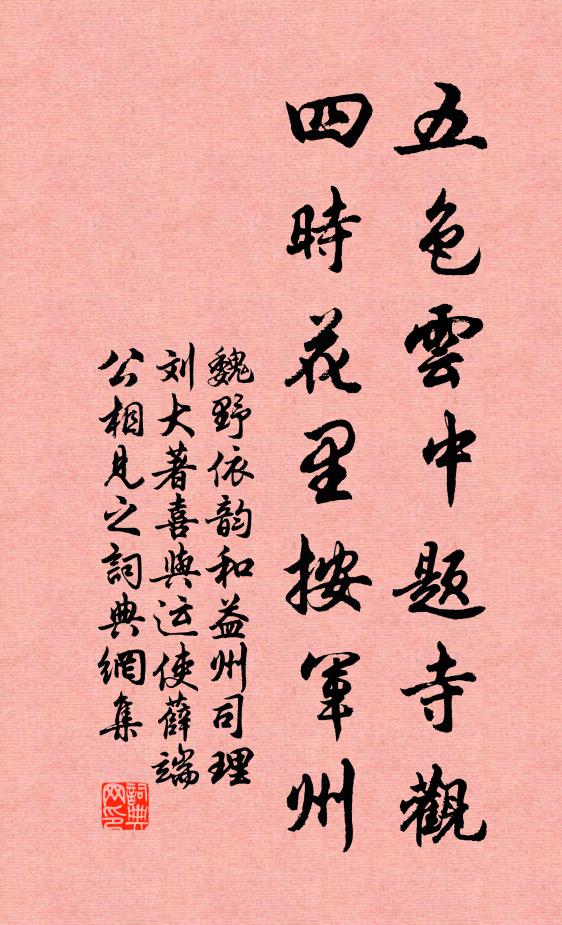 五色雲中題寺觀
四時花里按軍州
魏野依韵和益州司理
刘大著喜與运使薛端
公相見之詞典網集
詞典网印